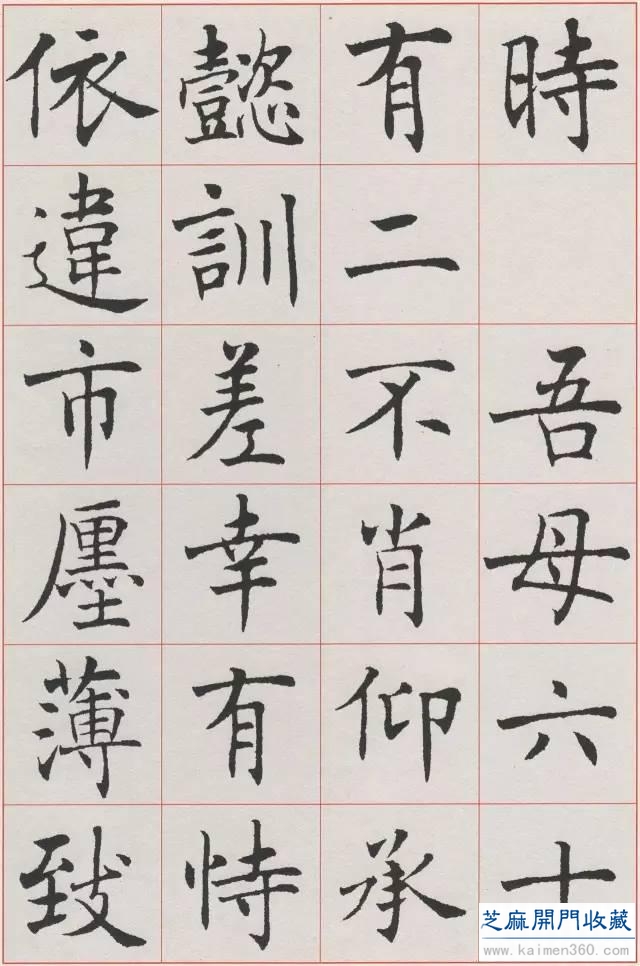 時　吾母六十
有二不肖仰承
懿訓差幸有恃
依違市廛薄致
芝麻開門收藏
www.kaimen360.com